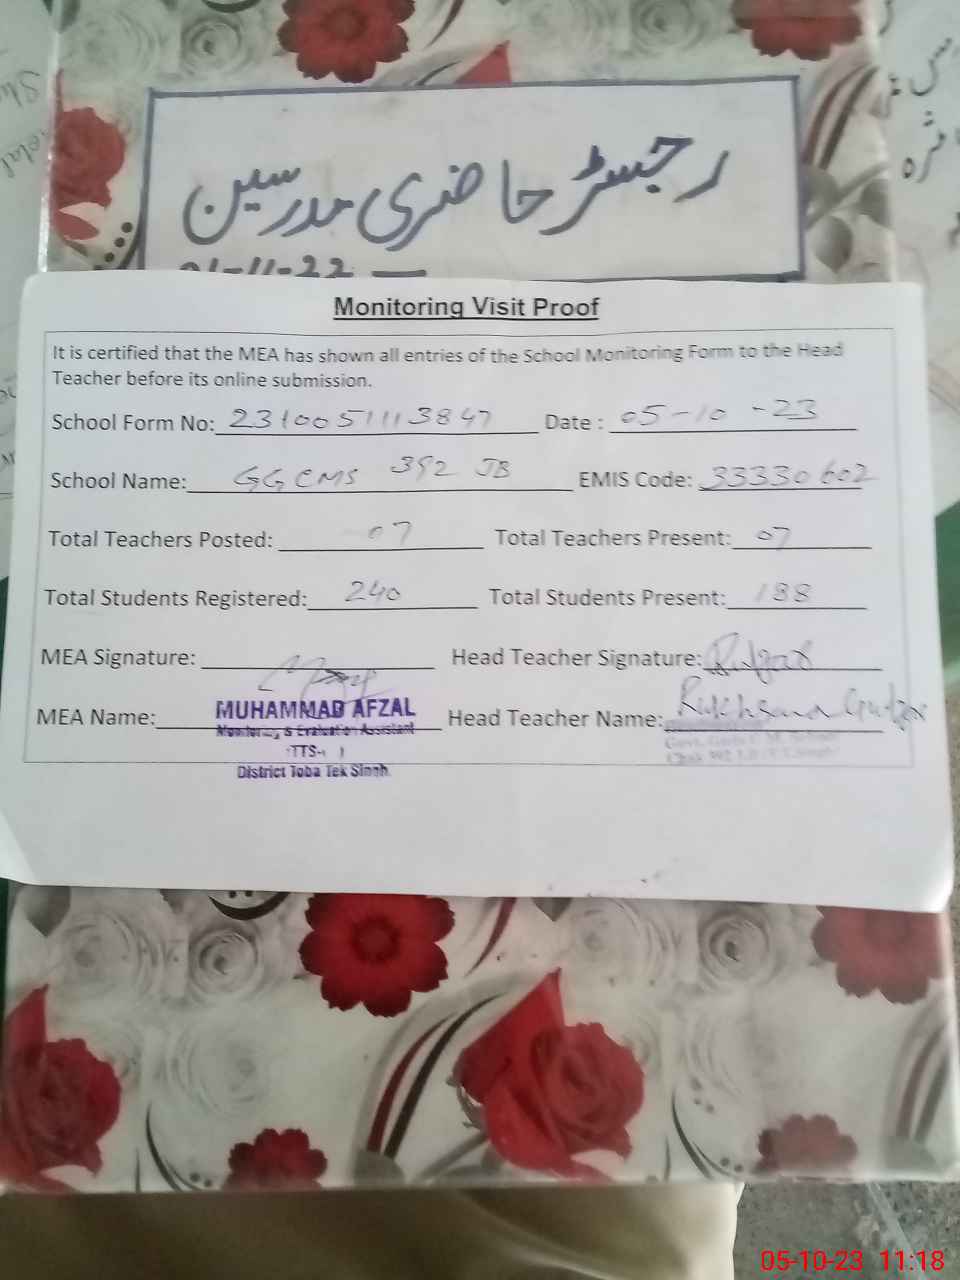 رجسٹر حاضری مدرسین
01-11-22
Monitoring Visit Proof
It is certified that the MEA has shown all entries of the School Monitoring Form to the Head
Teacher before its online submission.
School Form No: 2310051113847 Date : 05-10-23
School Name: GGCMS 392 JB EMIS Code: 33330602
Total Teachers Posted: 07 Total Teachers Present: 07
Total Students Registered: 240 Total Students Present: 188
MEA Signature: Head Teacher Signature:
MEA Name: MUHAMMAD AFZAL Head Teacher Name: Rukhsana Gulzar
Monitoring & Evaluation Assistant
District Toba Tek Singh
05-10-23 11:18